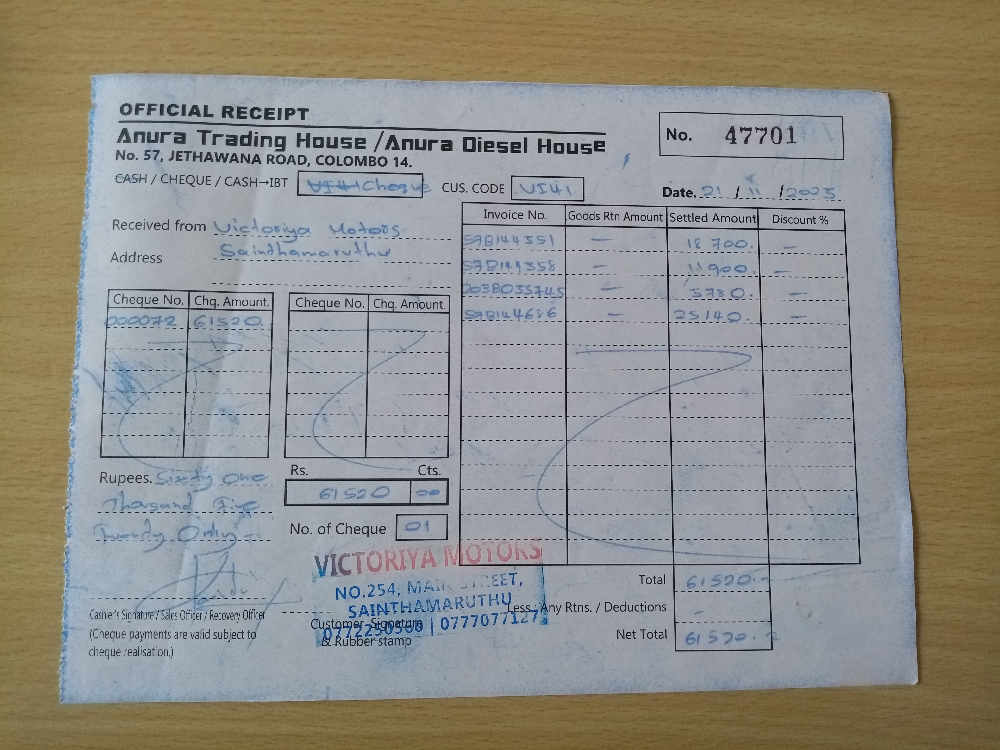 OFFICIAL RECEIPT
Anura Trading House /Anura Diesel House
No. 57, JETHAWANA ROAD, COLOMBO 14.
No. 47701
CASH / CHEQUE / CASH→IBT Cheque CUS. CODE VI41
Date. 21 / 11 / 2025
Received from Victoriya Motors
Address Sainthamaruthu
Invoice No. Goods Rtn Amount Settled Amount Discount %
— 18 700. —
— 11900. —
— 5780. —
— 25140. —
Cheque No. Chq. Amount. Cheque No. Chq. Amount.
000072 61520.
Rupees. Sixty One
Thousand Five
Twenty Only
Rs. Cts.
61520 00
No. of Cheque 01
Total 61520.
Less : Any Rtns. / Deductions -
Net Total 61520.
Cashier's Signature / Sales Officer / Recovery Officer
(Cheque payments are valid subject to
cheque realisation.)
Customer Signature
& Rubber stamp
VICTORIYA MOTORS
NO.254, MAIN STREET,
SAINTHAMARUTHU
| 0777077127